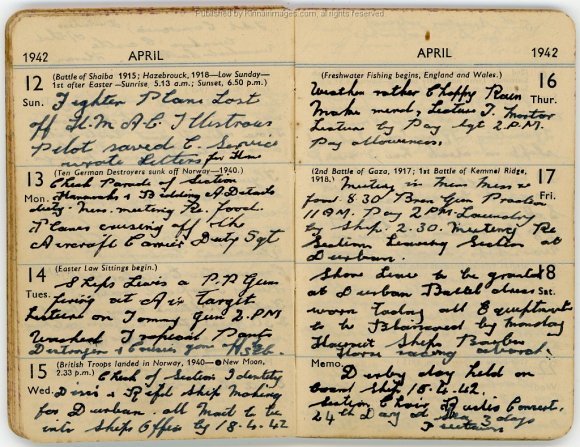 Published by Kirinaimages.com, all rights reserved
1942 APRIL
12 (Battle of Shaiba 1915; Hazebrouck, 1918—Low Sunday—
1st after Easter—Sunrise, 5.13 a.m.; Sunset, 6.50 p.m.)
Sun. Fighter Plane Lost
off H.M.A.C. Illustrous
Pilot saved C. Service
wrote Letters for Hm
13 (Ten German Destroyers sunk off Norway—1940.)
Check Parade of Section
Mon. Hammocks & Bedding A Details
duty. Mess. meeting Re. food.
Planes cruising off the
Aircraft Carrier Duty Sgt
14 (Easter Law Sittings begin.)
Ships Guns &
Tues. firing at Air target
Lecture on Tommy Gun 2 P.M
Washed Tropical Pants
Destroyer & Cruiser
15 (British Troops landed in Norway, 1940—●New Moon,
2.33 p.m.) Check of Section Identity
Wed. Discs & Ship Making
for Durban. all Mail to be
into Ships Office by 18.4.42
APRIL 1942
(Freshwater Fishing begins, England and Wales.) 16
Weather rather Choppy Rain
Thur.
Make mend, Lecture T. Mortar
Lecture by Pay Sgt 2 P.M.
Pay allowances.
(2nd Battle of Gaza, 1917; 1st Battle of Kemmel Ridge, 17
1918.) Meeting in Mens Mess
Fri.
food 8.30 Bren Gun Practice
11 A.M. Pay 2 P.M. Laundry
by Ship. 2.30. Meeting Re
Section Leaving Section at
Durban.
Shore Leave to be granted 18
at Durban Battle dress
Sat.
worn today all Equiptments
to be Blancoed by monday
Haircut Ships Barber
Horse racing aboard.
Memo Derby day held on
board Ship 18.4.42.
Section Choir Concert.
24th Day at Sea 3 days